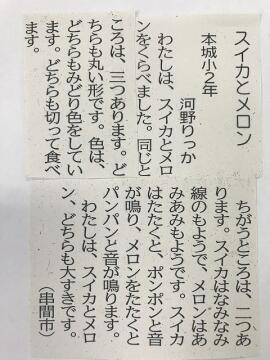 スイカとメロン
本城小２年
河野りっか
わたしは、スイカとメロ
ンをくらべました。同じと
ころは、三つあります。ど
ちらも丸い形です。色は、
どちらもみどり色をしてい
ます。どちらも切って食べ
ます。
ちがうところは、二つあ
ります。スイカはなみなみ
線のもようで、メロンはあ
みあみもようです。スイカ
はたたくと、ポンポンと音
が鳴り、メロンをたたくと
パンパンと音が鳴ります。
わたしは、スイカとメロ
ン、どちらも大すきです。
（串間市）